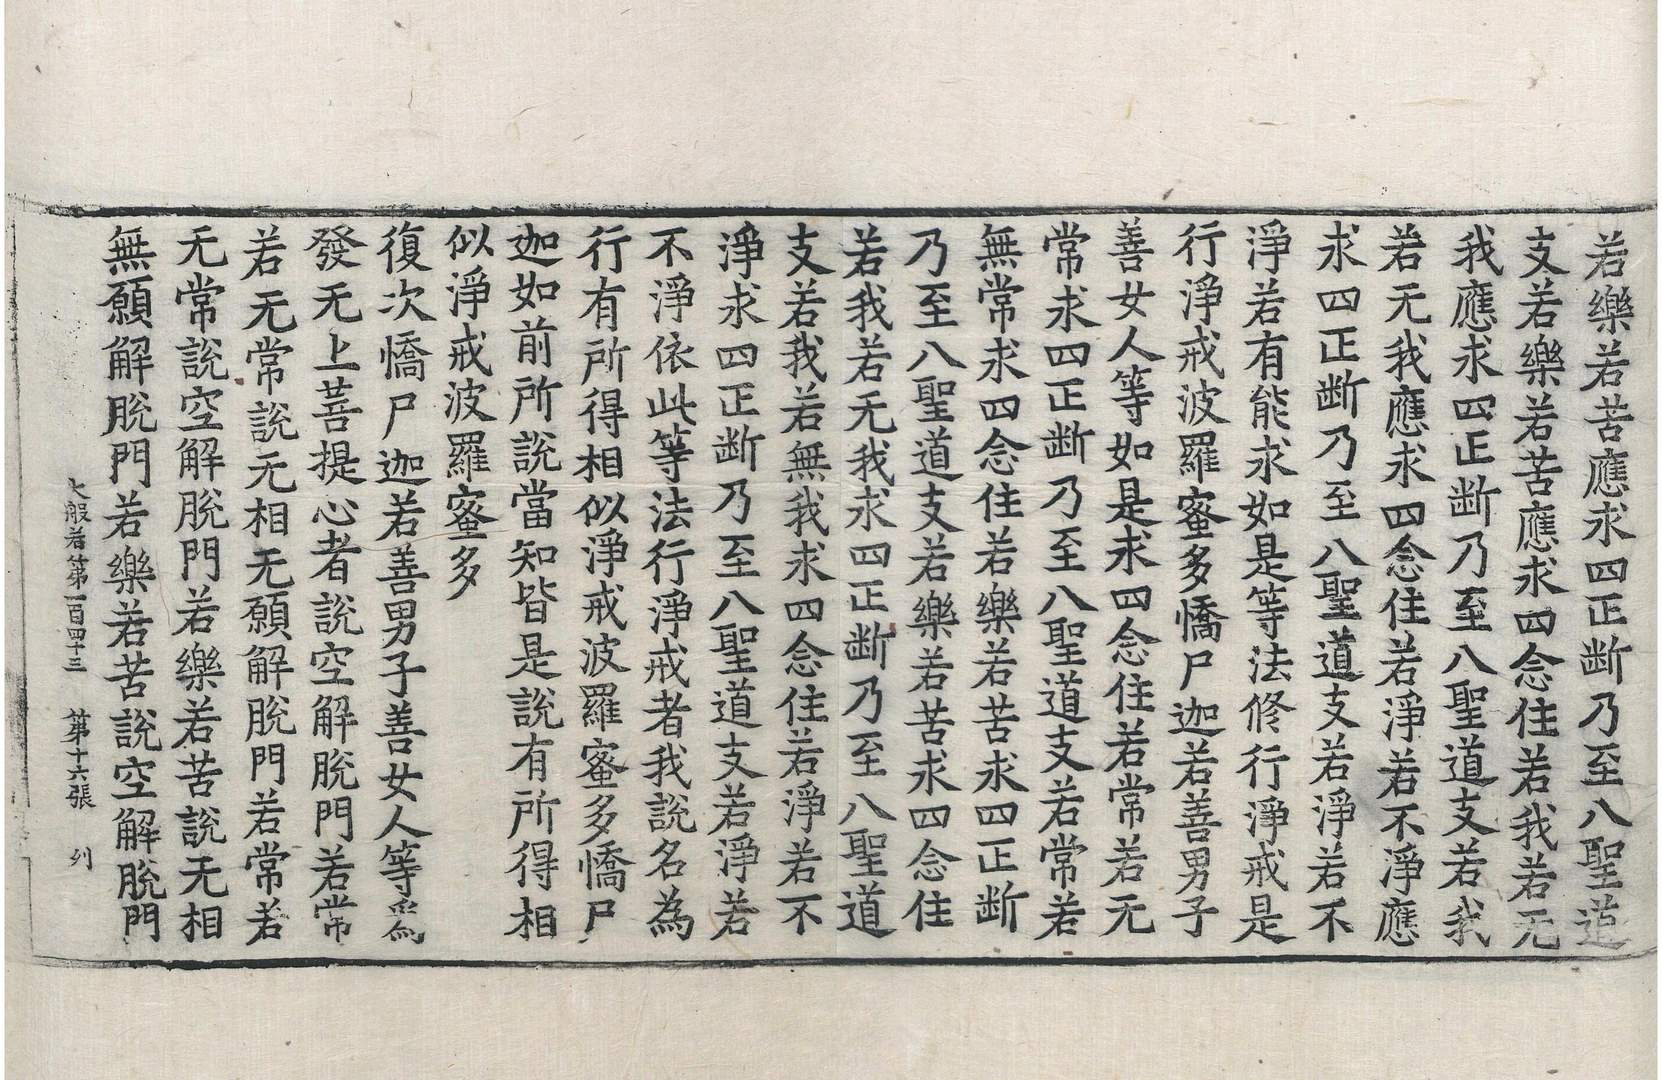 若樂若苦應求四正断乃至八聖道
支若樂若苦應求四念住若我若无
我應求四正断乃至八聖道支若我
若无我應求四念住若淨若不淨應
求四正断乃至八聖道支若淨若不
淨若有能求如是等法修行淨戒是
行淨戒波羅蜜多憍尸迦若善男子
善女人等如是求四念住若常若无
常求四正断乃至八聖道支若常若
無常求四念住若樂若苦求四正断
乃至八聖道支若樂若苦求四念住
若我若无我求四正断乃至八聖道
支若我若無我求四念住若淨若不
淨求四正断乃至八聖道支若淨若
不淨依此等法行淨戒者我說名為
行有所得相似淨戒波羅蜜多憍尸
迦如前所說當知皆是說有所得相
似淨戒波羅蜜多
復次憍尸迦若善男子善女人等爲
發无上菩提心者說空解脫門若常
若无常說无相无願解脫門若常若
无常說空解脫門若樂若苦說无相
無願解脫門若樂若苦說空解脫門
大般若第一百四十三 第十六張 列